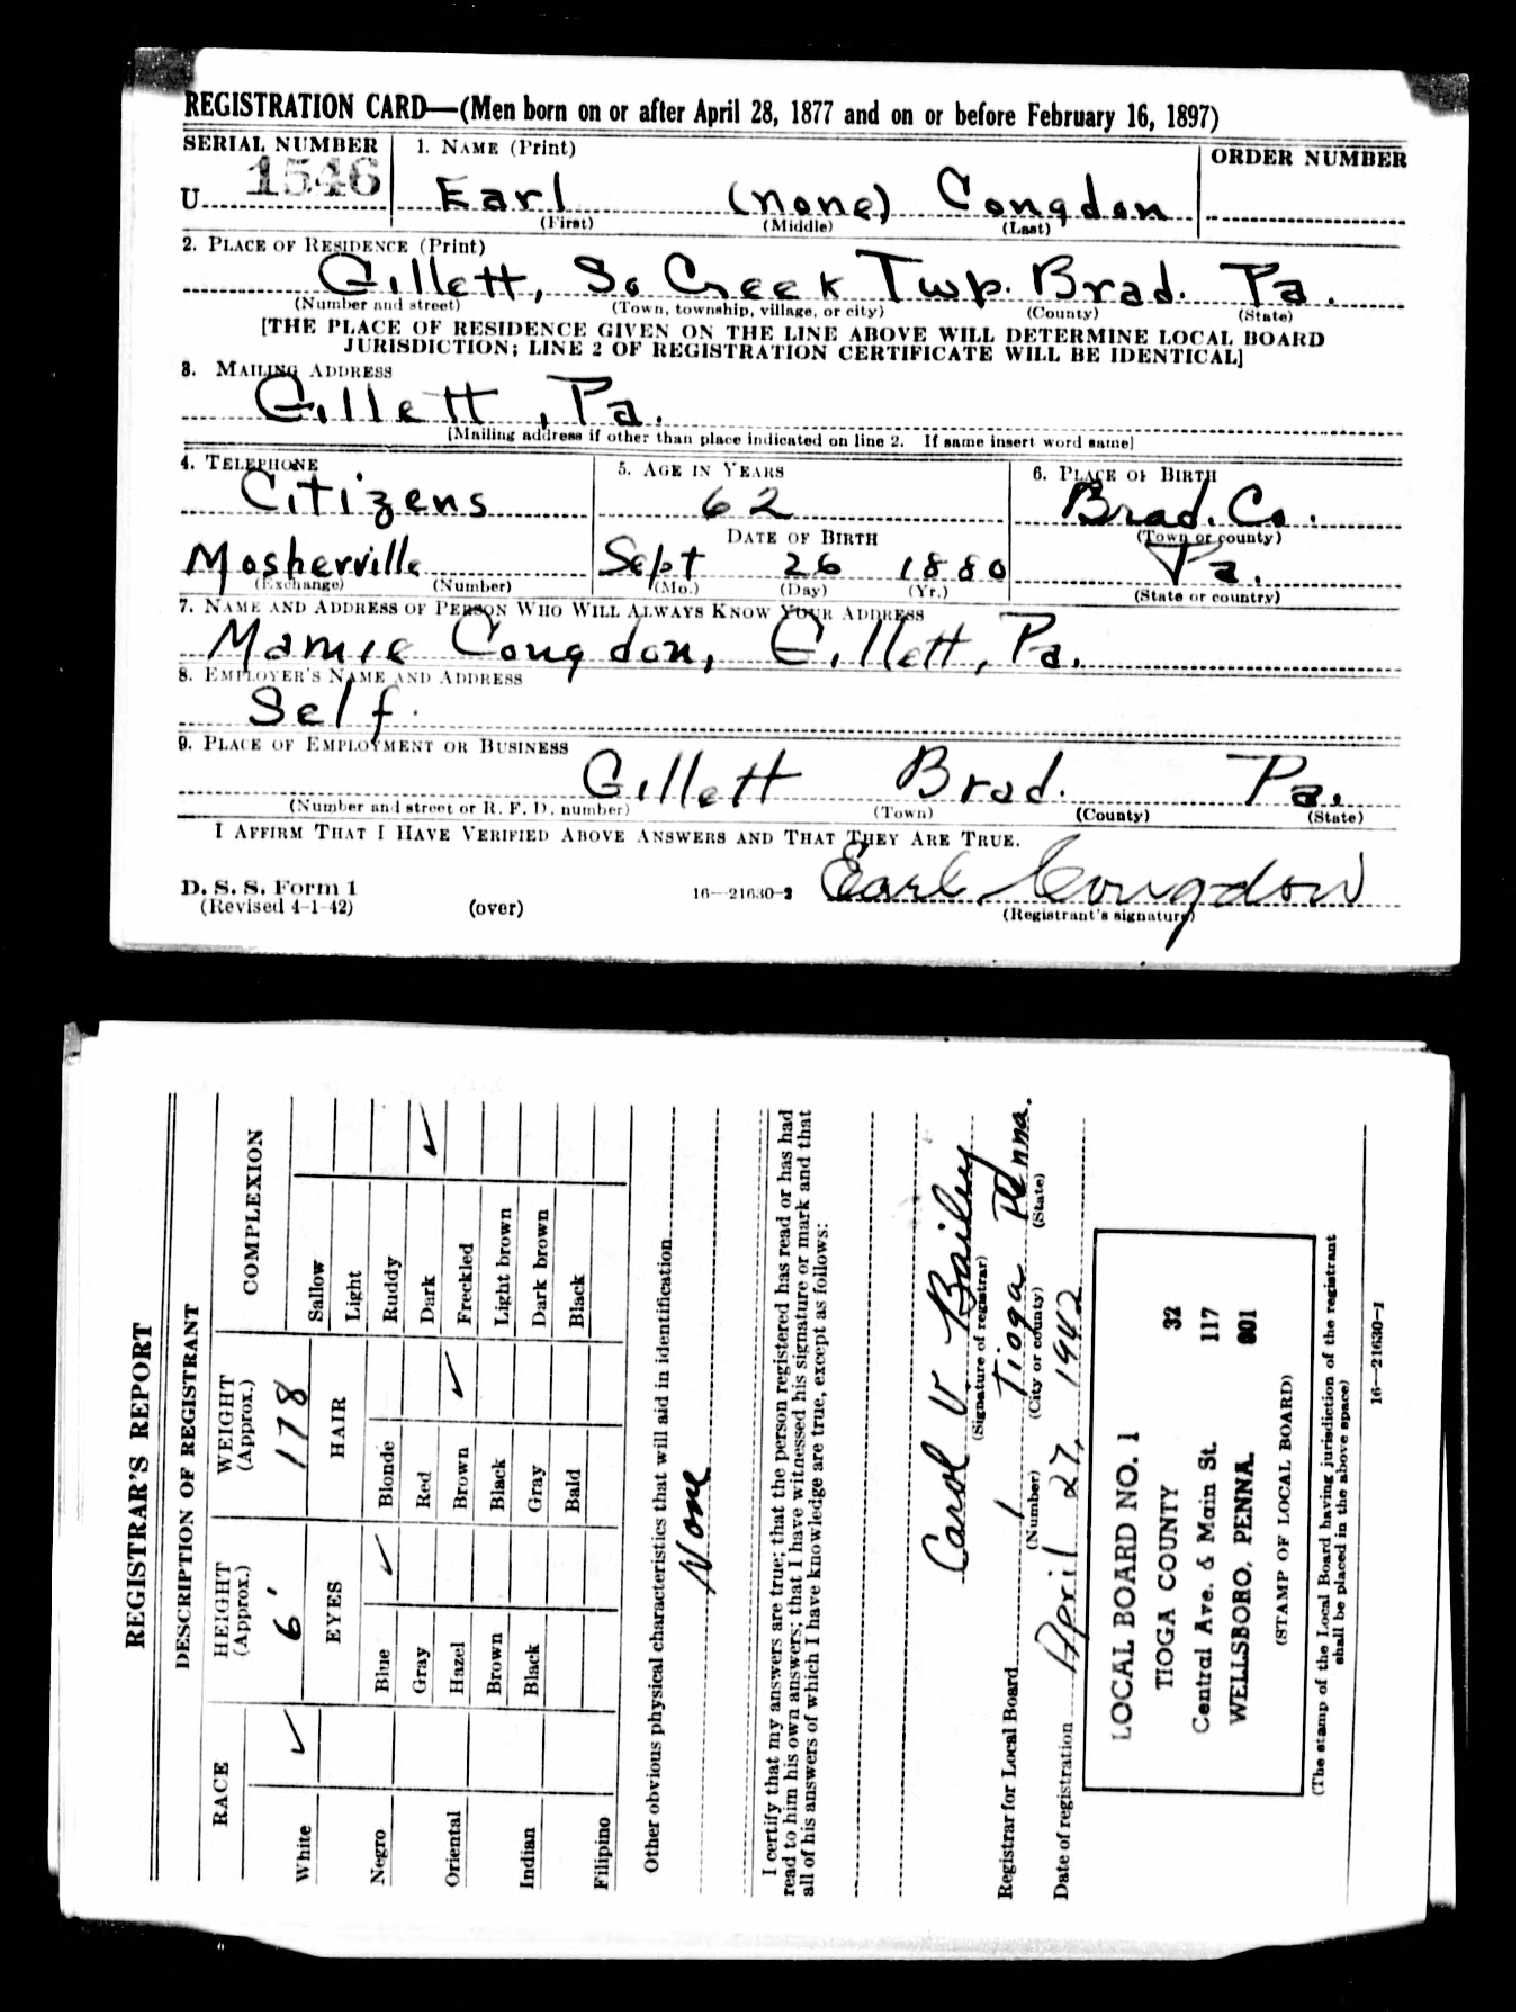 REGISTRATION CARD—(Men born on or after April 28, 1877 and on or before February 16, 1897)
SERIAL NUMBER
U 1546
1. NAME (Print)
Earl (none) Congdon
(First) (Middle) (Last)
ORDER NUMBER
2. PLACE OF RESIDENCE (Print)
Gillett, So Creek Twp. Brad. Pa.
(Number and street) (Town, township, village, or city) (County) (State)
[THE PLACE OF RESIDENCE GIVEN ON THE LINE ABOVE WILL DETERMINE LOCAL BOARD
JURISDICTION; LINE 2 OF REGISTRATION CERTIFICATE WILL BE IDENTICAL]
3. MAILING ADDRESS
Gillett, Pa.
[Mailing address if other than place indicated on line 2. If same insert word same]
4. TELEPHONE
Citizens
Mosherville
(Exchange) (Number)
5. AGE IN YEARS
62
DATE OF BIRTH
Sept 26 1880
(Mo.) (Day) (Yr.)
6. PLACE OF BIRTH
Brad. Co.
(Town or county)
Pa.
(State or country)
7. NAME AND ADDRESS OF PERSON WHO WILL ALWAYS KNOW YOUR ADDRESS
Mamie Congdon, Gillett, Pa.
8. EMPLOYER'S NAME AND ADDRESS
Self.
9. PLACE OF EMPLOYMENT OR BUSINESS
Gillett Brad. Pa.
(Number and street or R. F. D. number) (Town) (County) (State)
I AFFIRM THAT I HAVE VERIFIED ABOVE ANSWERS AND THAT THEY ARE TRUE.
D. S. S. Form 1
(Revised 4-1-42)
(over)
16—21630-2
Earl Congdon
(Registrant's signature)
REGISTRAR'S REPORT
DESCRIPTION OF REGISTRANT
RACE
White ✓
Negro
Oriental
Indian
Filipino
HEIGHT
(Approx.)
6'
WEIGHT
(Approx.)
178
EYES
Blue ✓
Gray
Hazel
Brown
Black
HAIR
Blonde
Red
Brown ✓
Black
Gray
Bald
COMPLEXION
Sallow
Light
Ruddy
Dark ✓
Freckled
Light brown
Dark brown
Black
Other obvious physical characteristics that will aid in identification
None
I certify that my answers are true; that the person registered has read or has had
read to him his own answers; that I have witnessed his signature or mark and that
all of his answers of which I have knowledge are true, except as follows:
Carol V Bailey
(Signature of registrar)
Registrar for Local Board 1 Tioga Penna.
(Number) (City or county) (State)
Date of registration April 27, 1942
LOCAL BOARD NO. 1
TIOGA COUNTY 32
Central Ave. & Main St. 117
WELLSBORO, PENNA. 001
(STAMP OF LOCAL BOARD)
(The stamp of the Local Board having jurisdiction of the registrant
shall be placed in the above space)
16—21630-1